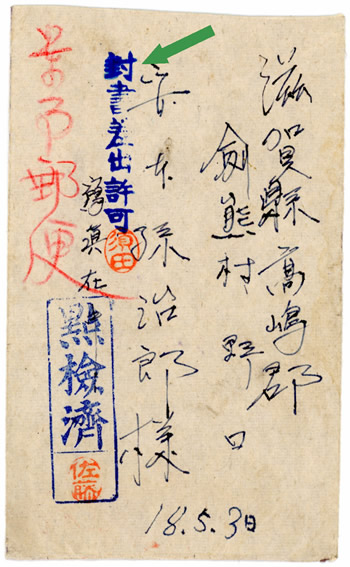 滋賀縣高嶋郡
劍熊村 野口
安本孫治郎様
封書差出許可
須田
寫眞在
點檢濟
佐藤
軍事郵便
18.5.3日